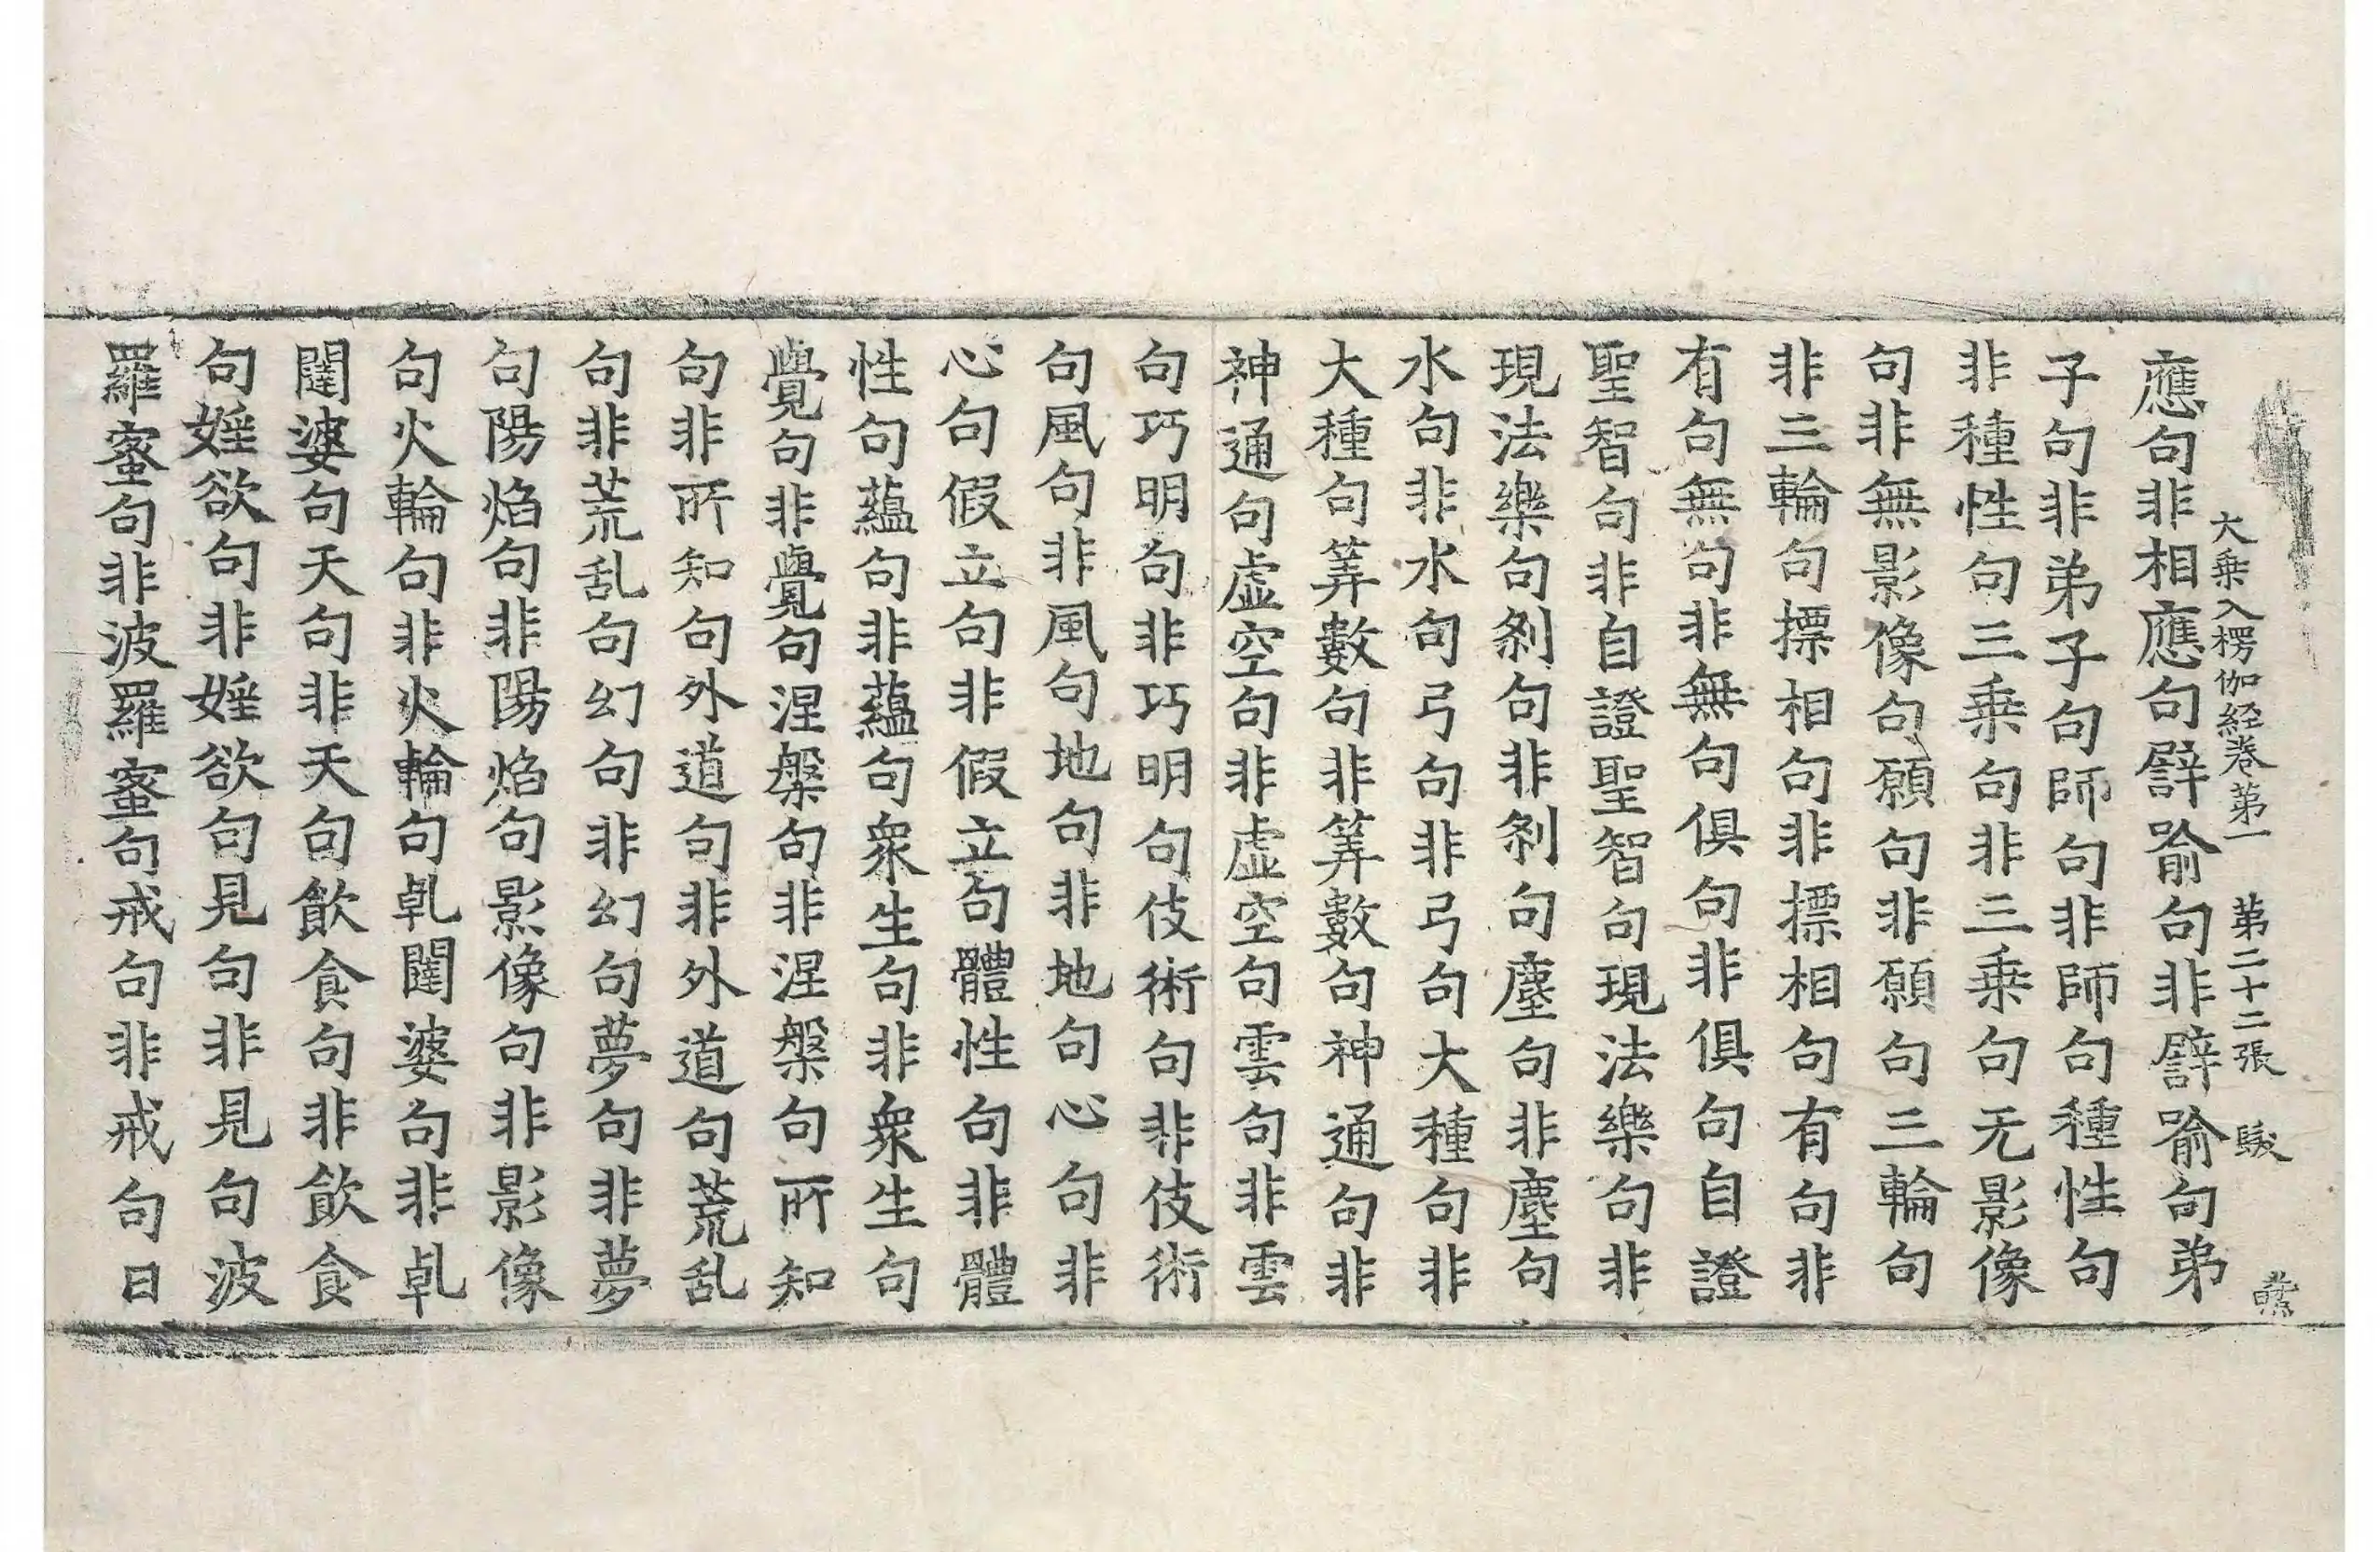 應句非相應句譬喻句非譬喻句弟
大乘入楞伽経卷苐一 苐二十二張
子句非弟子句師句非師句種性句
非種性句三乗句非三乗句无影像
句非無影像句願句非願句三輪句
非三輪句摽相句非摽相句有句非
有句無句非無句俱句非俱句自證
聖智句非自證聖智句現法樂句非
現法樂句刹句非刹句塵句非塵句
水句非水句弓句非弓句大種句非
大種句筭數句非筭數句神通句非
神通句虛空句非虛空句雲句非雲
句巧明句非巧明句伎術句非伎術
句風句非風句地句非地句心句非
心句假立句非假立句體性句非體
性句蘊句非蘊句衆生句非衆生句
覺句非覺句涅槃句非涅槃句所知
句非所知句外道句非外道句荒乱
句非荒乱句幻句非幻句夢句非夢
句陽焰句非陽焰句影像句非影像
句火輪句非火輪句乹闥婆句非乹
闥婆句天句非天句飲食句非飲食
句婬欲句非婬欲句見句非見句波
羅蜜句非波羅蜜句戒句非戒句日